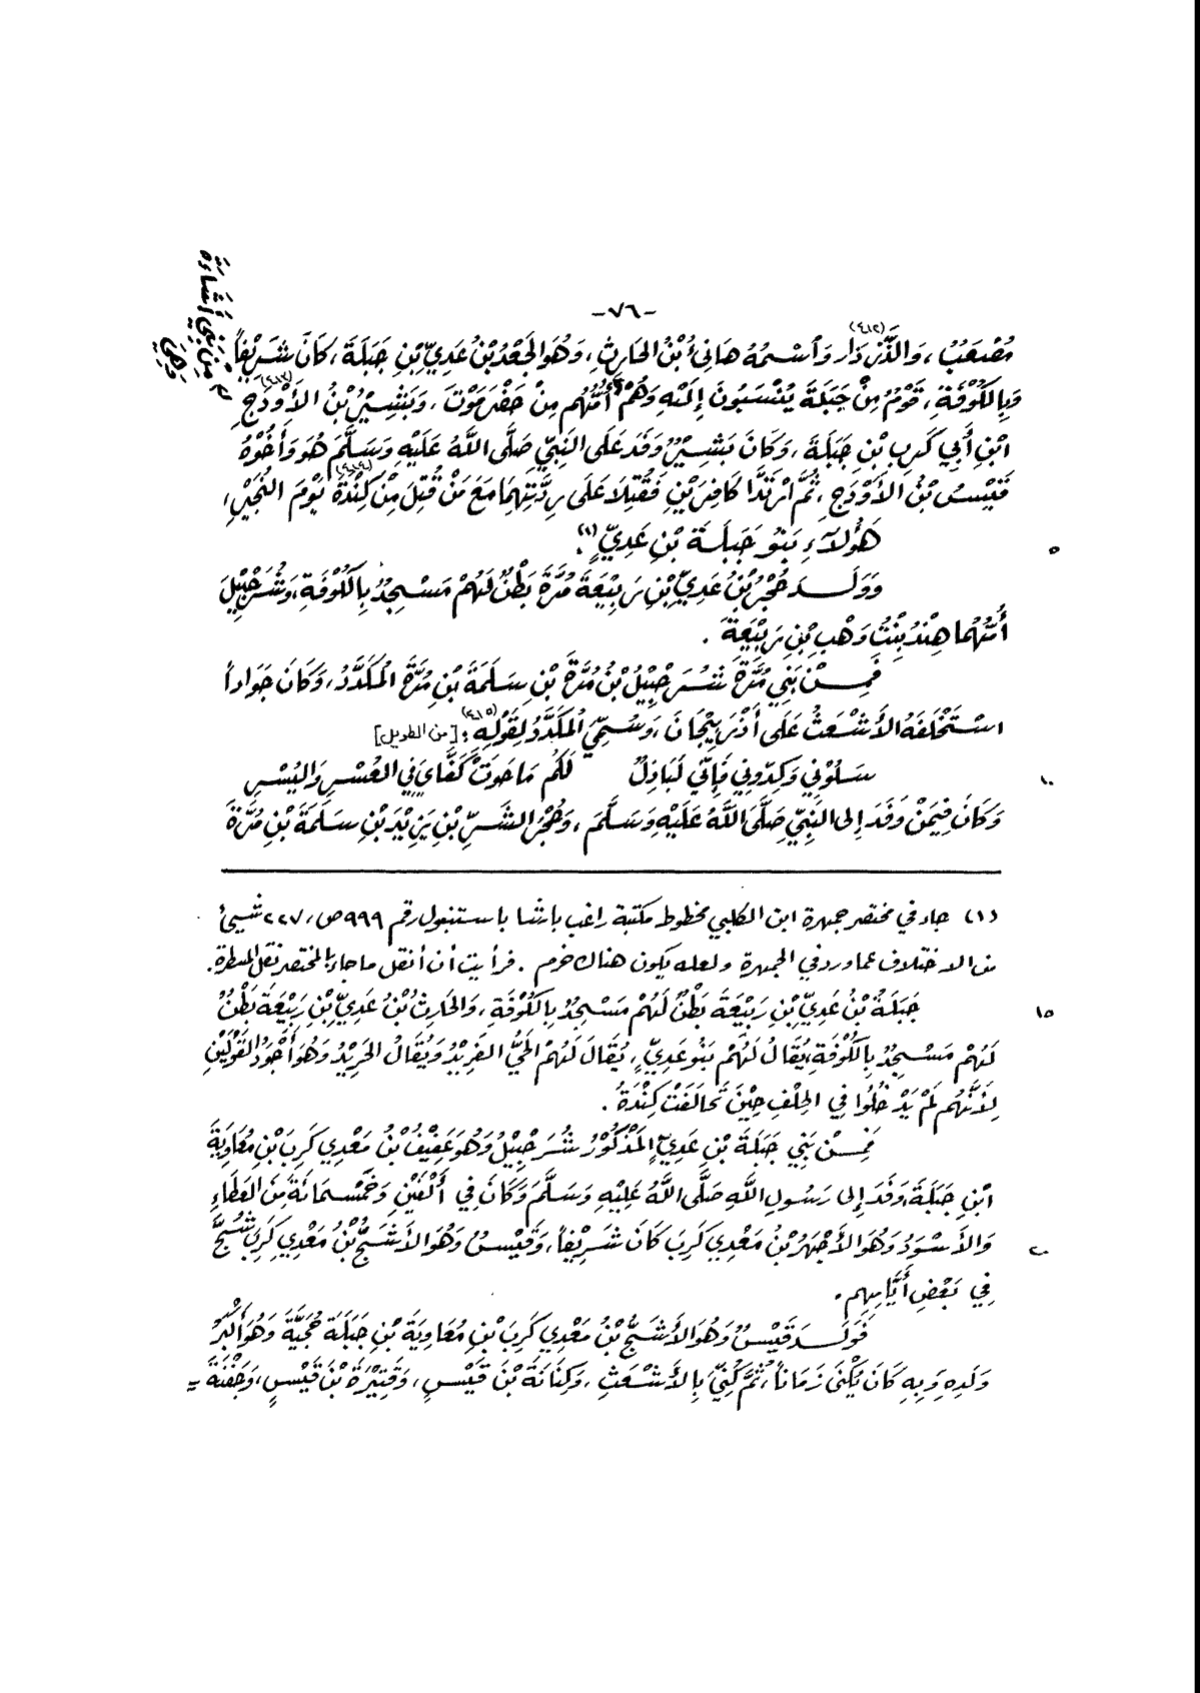 -٧٦-
مُصْعَبٌ، وَالذَّرَّدَار وَٱسْمُهُ هَانِئُ بْنُ الحَارِثِ، وَهُوَ الجَعْدُ بْنُ عَدِيِّ بْنِ جَبَلَةَ، كَانَ شَرِيْفاً
(٤١٢)
وَبِالكُوْفَةِ، قَوْمٌ مِنْ جَبَلَةَ يُنْسَبُونَ إِلَيْهِ وَهُمْ أُمُّهُم مِنْ حَضْرَمَوْتَ، وَبَشِيْرُ بْنُ الأَوْدَجِ
(٤١٣)
مِنْ بَنِي أَشَاءَةَ
وَهِيَ
ابْنِ أَبِي كَرِبِ بْنِ جَبَلَةَ، وَكَانَ بَشِيْرٌ وَفَدَ عَلَى النَبِيِّ صَلَّى اللَّهُ عَلَيْهِ وَسَلَّمَ هُوَ وَأَخُوْهُ
قَيْسُ بْنُ الأَوْدَجِ، ثُمَّ ارْتَدَّا كَافِرَيْنِ فَقُتِلَا عَلَى رِدَّتِهِمَا مَعَ مَنْ قُتِلَ مِنْ كِنْدَةَ يَوْمَ النُجَيْرِ،
(٤١٤)
هَؤُلَاءِ بَنُو جَبَلَةَ بْنِ عَدِيٍّ (١).
٥
وَوَلَـدَ حُجْرُ بْنُ عَدِيِّ بْنِ رَبِيْعَةَ مُرَّةَ بَطْنٌ لَهُمْ مَسْجِدٌ بِالكُوْفَةِ، وَشُرَحْبِيْلَ
أُمُّهُمَا هِنْدُ بِنْتُ وَهْبِ بْنِ رَبِيْعَةَ.
فَمِـنْ بَنِي مُرَّةَ شُرَحْبِيْلُ بْنُ مُرَّةَ بْنِ سَلَمَةَ بْنِ مُرَّةَ المُكَدَّدُ، وَكَانَ جَوَاداً
اسْتَخْلَفَهُ الأَشْعَثُ عَلَى أَذْرَبِيْجَانَ، وَسُمِّيَ المُكَدَّدُ لِقَوْلِهِ: [من الطويل]
(٤١٥)
سَلُوْنِي وَكِدُّونِي فَإِنِّي لَبَاذِلٌ لَكُم مَا حَوَتْ كَفَّايَ فِي العُسْرِ وَاليُسْرِ
١٠
وَكَانَ فِيمَنْ وَفَدَ إِلى النَبِيِّ صَلَّى اللَّهُ عَلَيْهِ وَسَلَّمَ، وَحُجْرُ الشَّرِّ بْنِ يَزِيْدَ بْنِ سَلَمَةَ بْنِ مُرَّةَ
(١) جاء في مختصر جمهرة ابن الكلبي مخطوط مكتبة راغب باشا باستنبول رقم ٩٩٩ ص، ٢٢٧ شيئ
من الاختلاف عما ورد في الجمهرة ولعله يكون هناك خرم. فرأيت أن أنقل ما جاء بالمختصر نقل المسطرة.
جَبَلَةُ بْنُ عَدِيِّ بْنِ رَبِيْعَةَ بَطْنٌ لَهُم مَسْجِدٌ بِالكُوْفَةِ، وَالحَارِثُ بْنُ عَدِيِّ بْنِ رَبِيْعَةَ بَطْنٌ
١٥
لَهُمْ مَسْجِدٌ بِالكُوْفَةِ يُقَالُ لَهُمْ بَنُو عَدِيٍّ، يُقَالُ لَهُمْ الحَيُّ الفَرِيْدُ وَيُقَالُ الحَرِيْدُ وَهُوَ أَجْوَدُ القَوْلَيْنِ
لِأَنَّهُم لَمْ يَدْخُلُوا فِي الحِلْفِ حِيْنَ تَحَالَفَتْ كِنْدَةُ.
فَمِـنْ بَنِي جَبَلَةَ بْنِ عَدِيٍّ المَذْكُوْرُ شُرَحْبِيْلُ وَهُوَ عَفِيْفُ بْنُ مَعْدِي كَرِبَ بْنِ مُعَاوِيَةَ
ابْنِ جَبَلَةَ، وَفَدَ إِلى رَسُولِ اللَّهِ صَلَّى اللَّهُ عَلَيْهِ وَسَلَّمَ وَكَانَ فِي أَلْفَيْنِ وَخَمْسِمَائَةٍ مِنَ العَطَاءِ
وَالأَسْوَدُ وَهُوَ الأَجْهَرُ بْنُ مَعْدِي كَرِبَ كَانَ شَرِيْفاً، وَقَيْسٌ وَهُوَ الأَشَجُّ بْنُ مَعْدِي كَرِبَ شُجَّ
٢٠
فِي بَعْضِ أَيَّامِهِم.
فَوَلَـدَ قَيْسٌ وَهُوَ الأَشَجُّ بْنُ مَعْدِي كَرِبَ بْنِ مُعَاوِيَةَ بْنِ جَبَلَةَ حُجَيَّةَ وَهُوَ أَكْبَرُ
وَلَدِهِ وَبِهِ كَانَ يُكْنَى زَمَاناً، ثُمَّ كُنِّيَ بِالأَشْعَثِ، وَكِنَانَةَ بْنَ قَيْسٍ، وَقَتِيْرَةَ بْنَ قَيْسٍ، وَجَفْنَةَ =